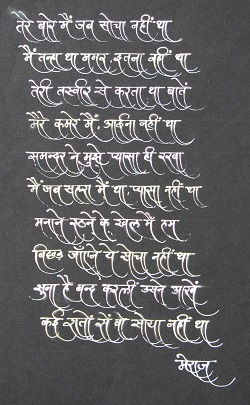 तेरे बारे में जब सोचा नहीं था
मैं तन्हा था मगर, इतना नहीं था
तेरी तस्वीर से करता था बातें
मेरे कमरे में, आईना नहीं था
समन्दर ने मुझे प्यासा ही रखा
मैं जब सहरा में था, प्यासा नहीं था
मनाने रुठने के खेल में हम
बिछड़ जाएँगे ये सोचा नहीं था
सुना है बन्द करली उसने आखें
कई रातों से वो सोया नहीं था
मेराज